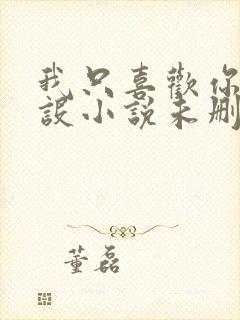 我只喜歡你
設小說未刪
董磊